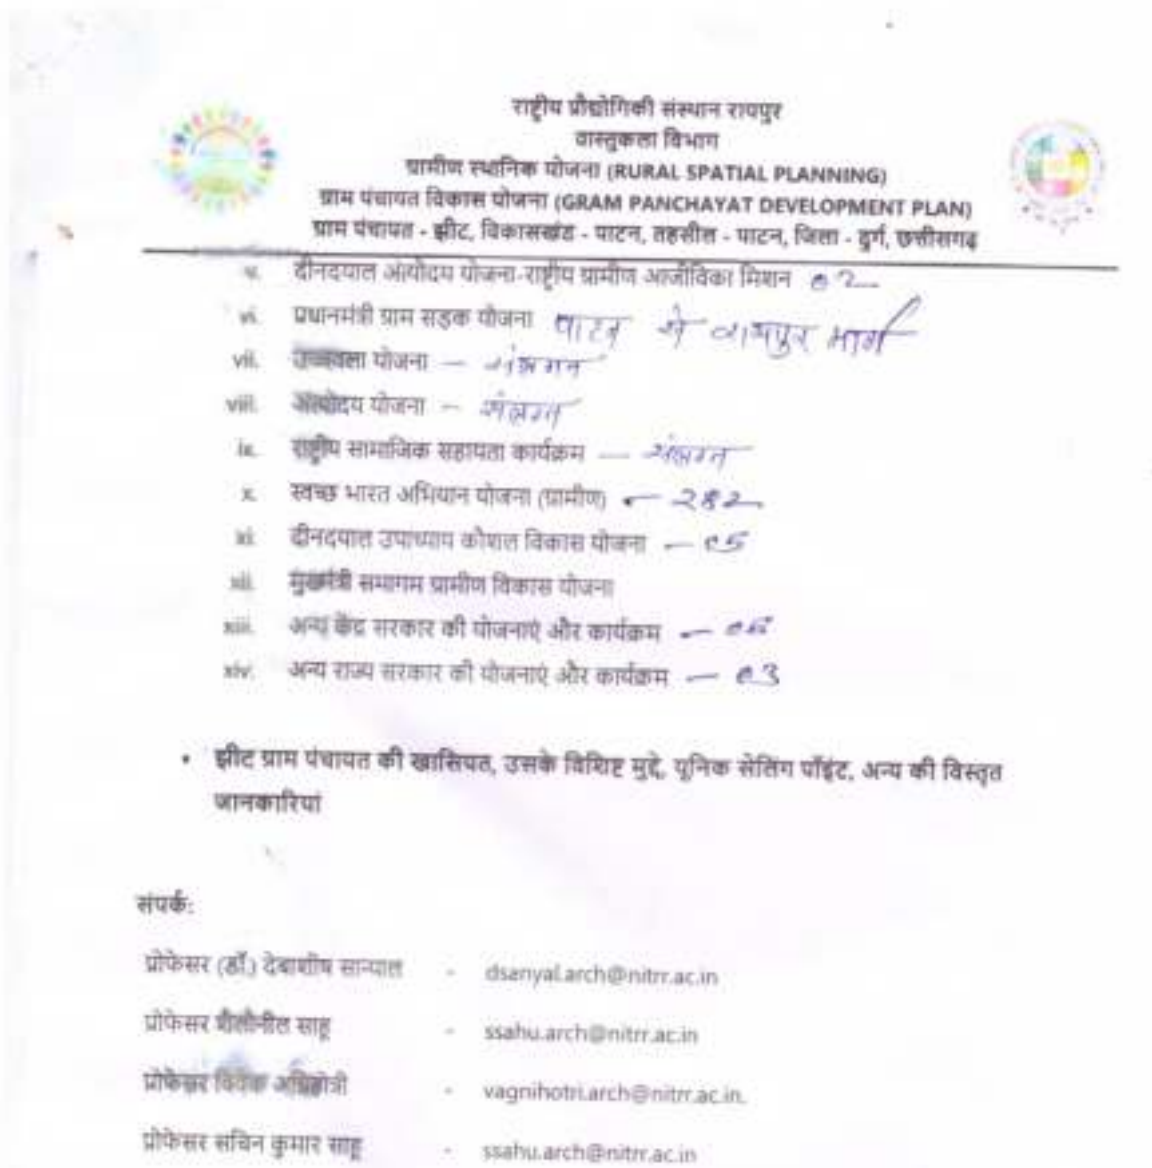 राष्ट्रीय प्रौद्योगिकी संस्थान रायपुर
वास्तुकला विभाग
ग्रामीण स्थानिक योजना (RURAL SPATIAL PLANNING)
ग्राम पंचायत विकास योजना (GRAM PANCHAYAT DEVELOPMENT PLAN)
ग्राम पंचायत - झीट, विकासखंड - पाटन, तहसील - पाटन, जिला - दुर्ग, छत्तीसगढ़
v. दीनदयाल अंत्योदय योजना-राष्ट्रीय ग्रामीण आजीविका मिशन 02
vi. प्रधानमंत्री ग्राम सड़क योजना पाटन से रायपुर मार्ग
vii. उज्जवला योजना — संलग्न
viii. अंत्योदय योजना — संलग्न
ix. राष्ट्रीय सामाजिक सहायता कार्यक्रम — संलग्न
x. स्वच्छ भारत अभियान योजना (ग्रामीण) — 282
xi. दीनदयाल उपाध्याय कौशल विकास योजना — 05
xii. मुख्यमंत्री समागम ग्रामीण विकास योजना
xiii. अन्य केंद्र सरकार की योजनाएं और कार्यक्रम —
xiv. अन्य राज्य सरकार की योजनाएं और कार्यक्रम — 03
• झीट ग्राम पंचायत की खासियत, उसके विशिष्ट मुद्दे, यूनिक सेलिंग पॉइंट, अन्य की विस्तृत
जानकारियां
संपर्क:
प्रोफेसर (डॉ.) देबाशीष सान्याल - dsanyal.arch@nitrr.ac.in
प्रोफेसर साहू - ssahu.arch@nitrr.ac.in
प्रोफेसर विवेक अग्निहोत्री - vagnihotri.arch@nitrr.ac.in.
प्रोफेसर सचिन कुमार साहू - ssahu.arch@nitrr.ac.in